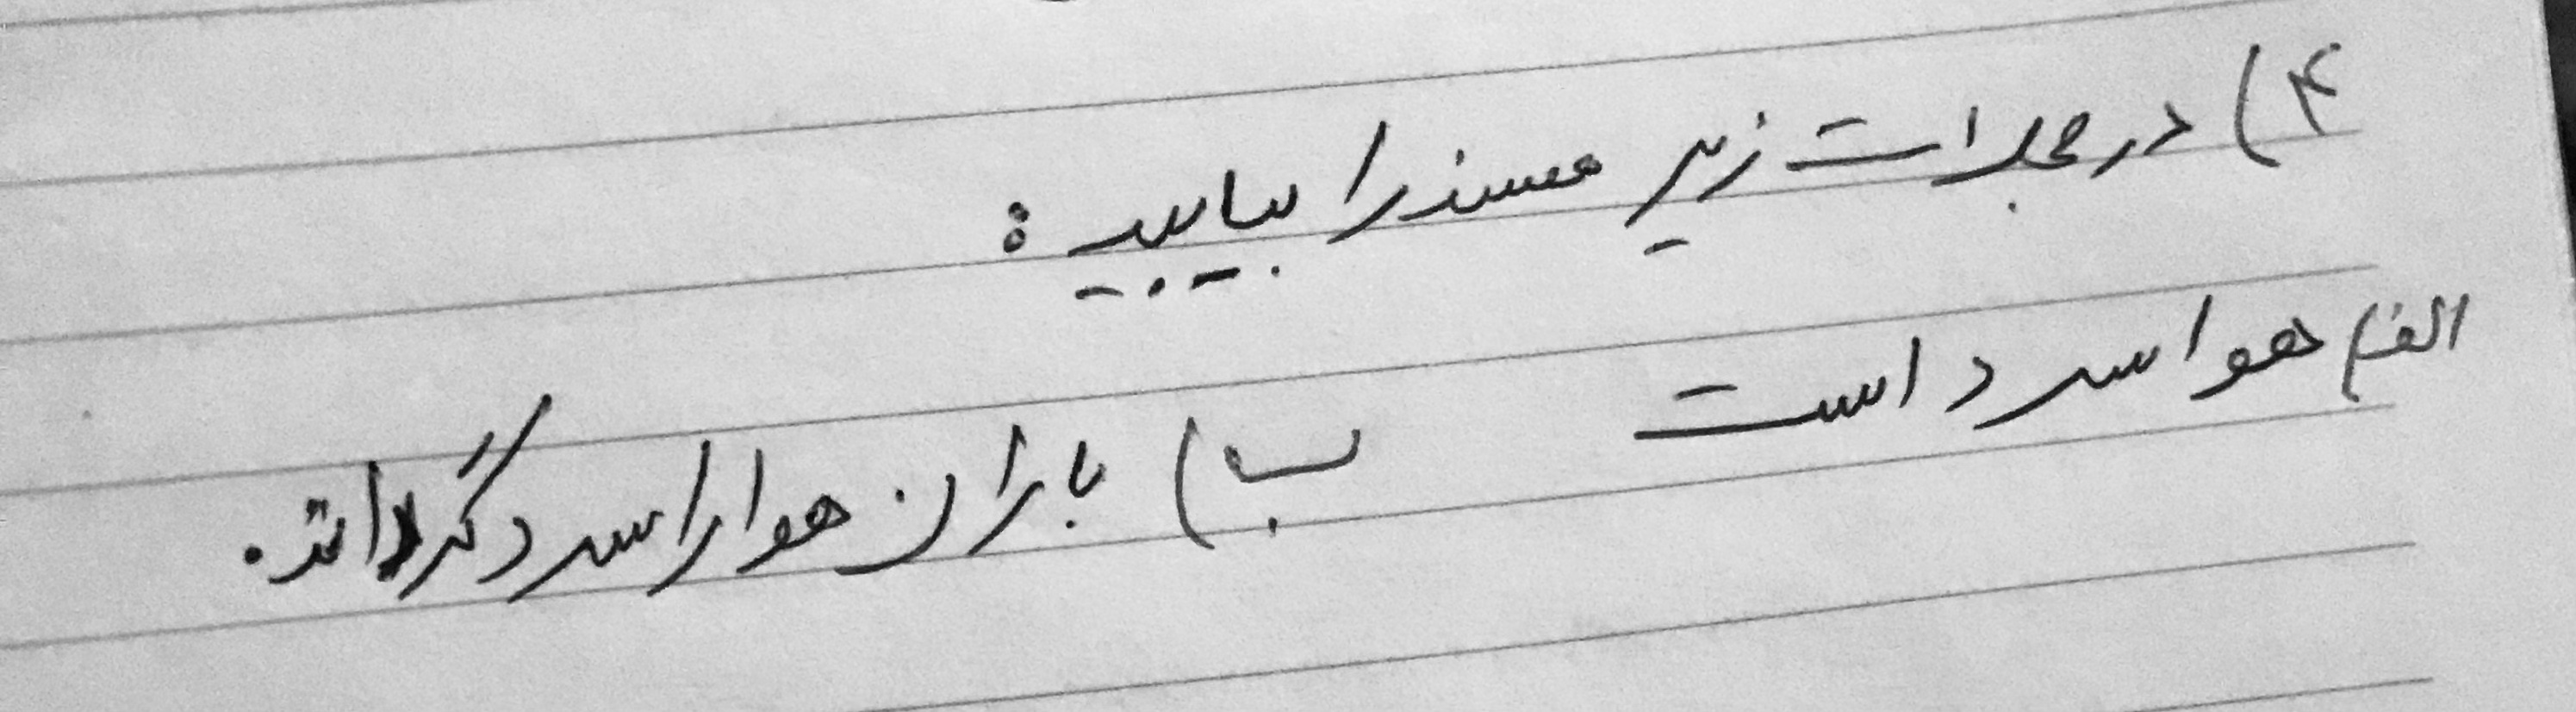 ۴) در جملات زیر مسند را بیابید :
الف) هوا سرد است ب) باران هوا را سرد گرداند.